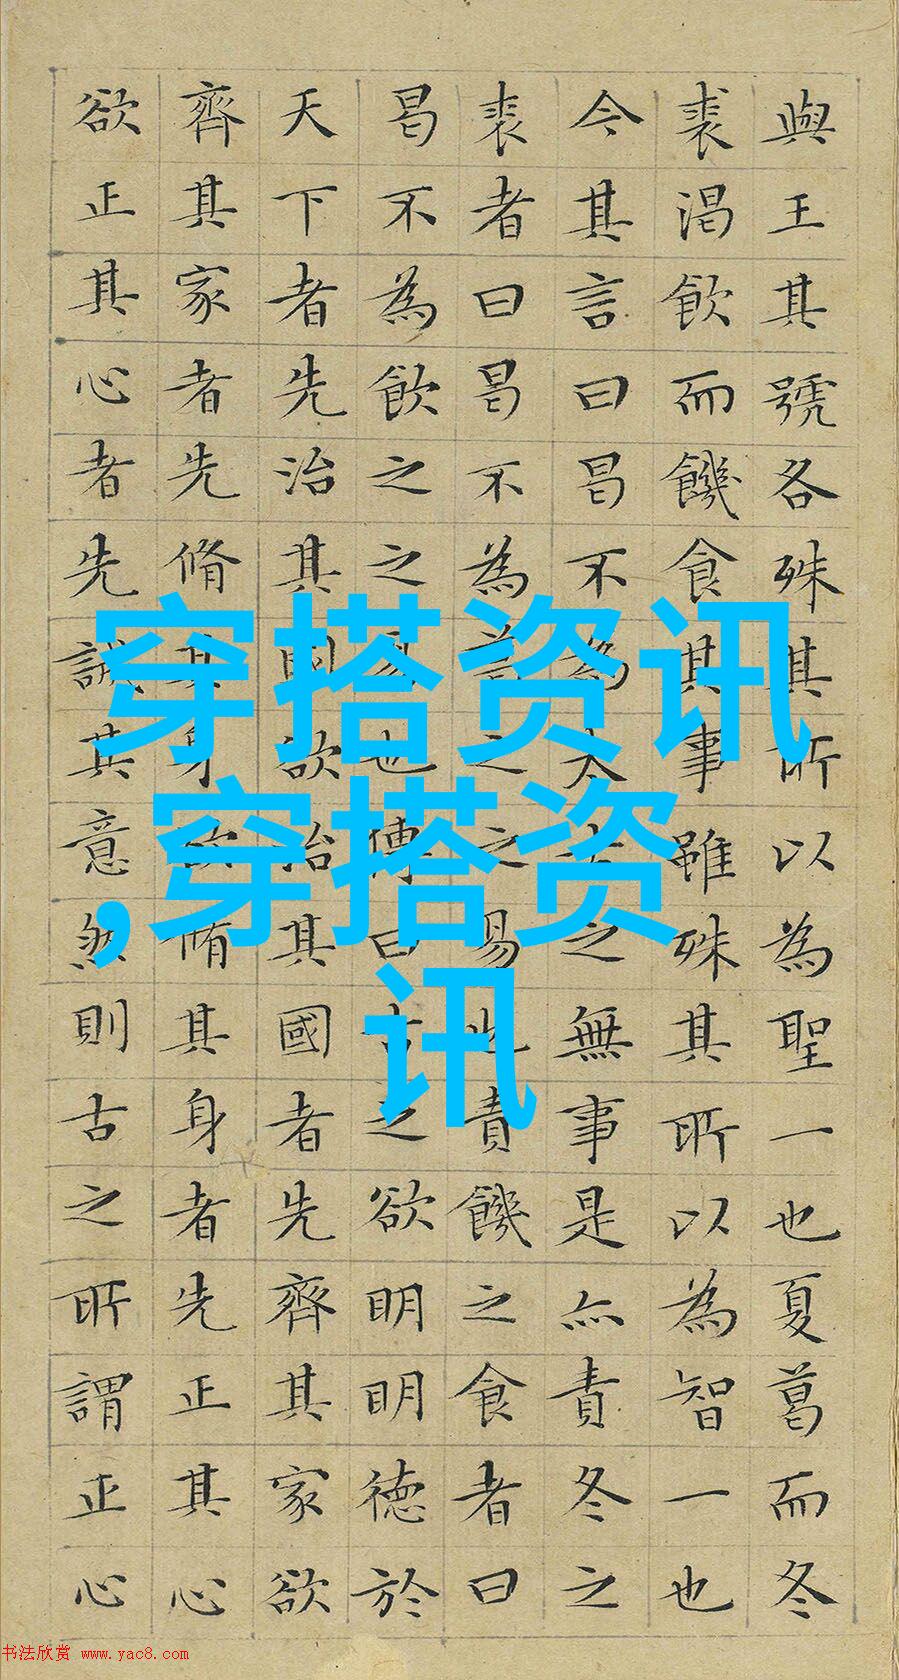 與王其號各殊其所以為聖一也夏葛而冬
裘渴飲而饑食其事雖殊其所以為智一也
今其言曰曷不為太古之無事是亦責冬之
裘者曰曷不為葛之之易也責饑之食者曰
曷不為飲之之易也傳曰古之欲明明德於
天下者先治其國欲治其國者先齊其家欲
齊其家者先脩其身欲脩其身者先正其心
欲正其心者先誠其意然則古之所謂正心
穿搭资讯
,穿搭资
讯
书法欣赏 www.yac8.com